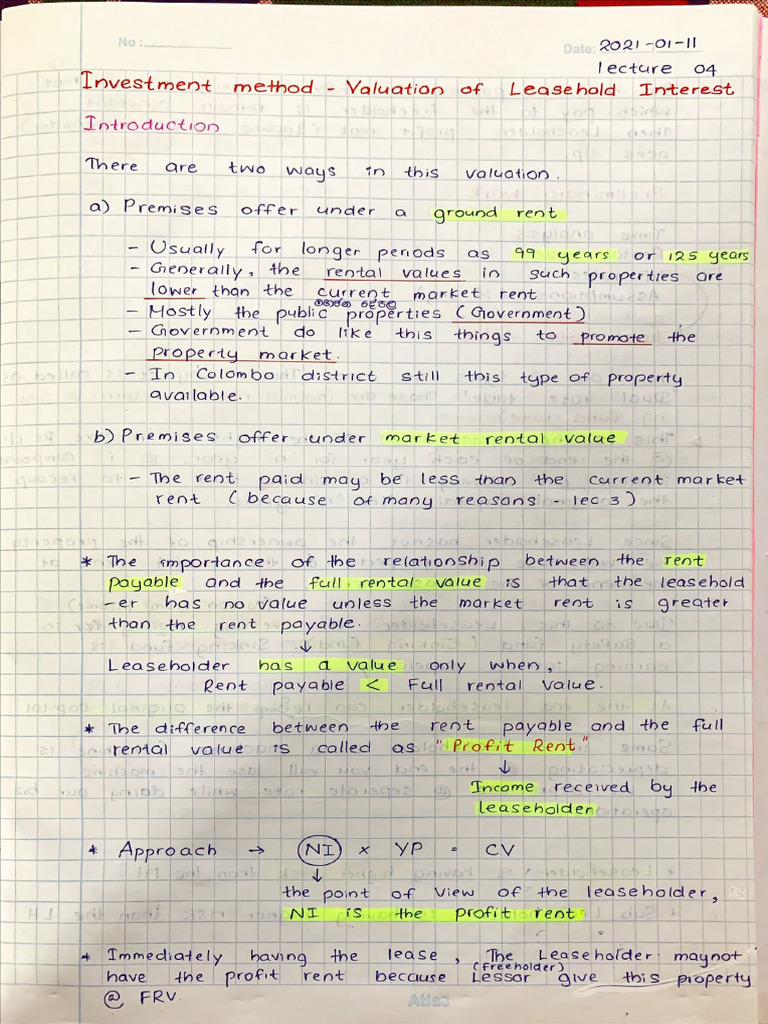 No :
Date: 2021-01-11
lecture 04
Investment method - Valuation of Leasehold Interest
Introduction
There are two ways in this valuation.
a) Premises offer under a ground rent
- Usually for longer periods as 99 years or 125 years
- Generally, the rental values in such properties are
lower than the current market rent
- Mostly the public properties (Government)
- Government do like this things to promote the
property market.
- In Colombo district still this type of property
available.
b) Premises offer under market rental value
- The rent paid may be less than the current market
rent (because of many reasons - lec 3)
* The importance of the relationship between the rent
payable and the full rental value is that the leasehold
-er has no value unless the market rent is greater
than the rent payable.
↓
Leaseholder has a value only when,
Rent payable < Full rental value.
* The difference between the rent payable and the full
rental value is called as "Profit Rent"
↓
Income received by the
leaseholder
* Approach → NI × YP = CV
↓
the point of view of the leaseholder,
NI is the profit rent
* Immediately having the lease, The Leaseholder maynot
(freeholder)
have the profit rent because Lessor give this property
@ FRV.
Atlas